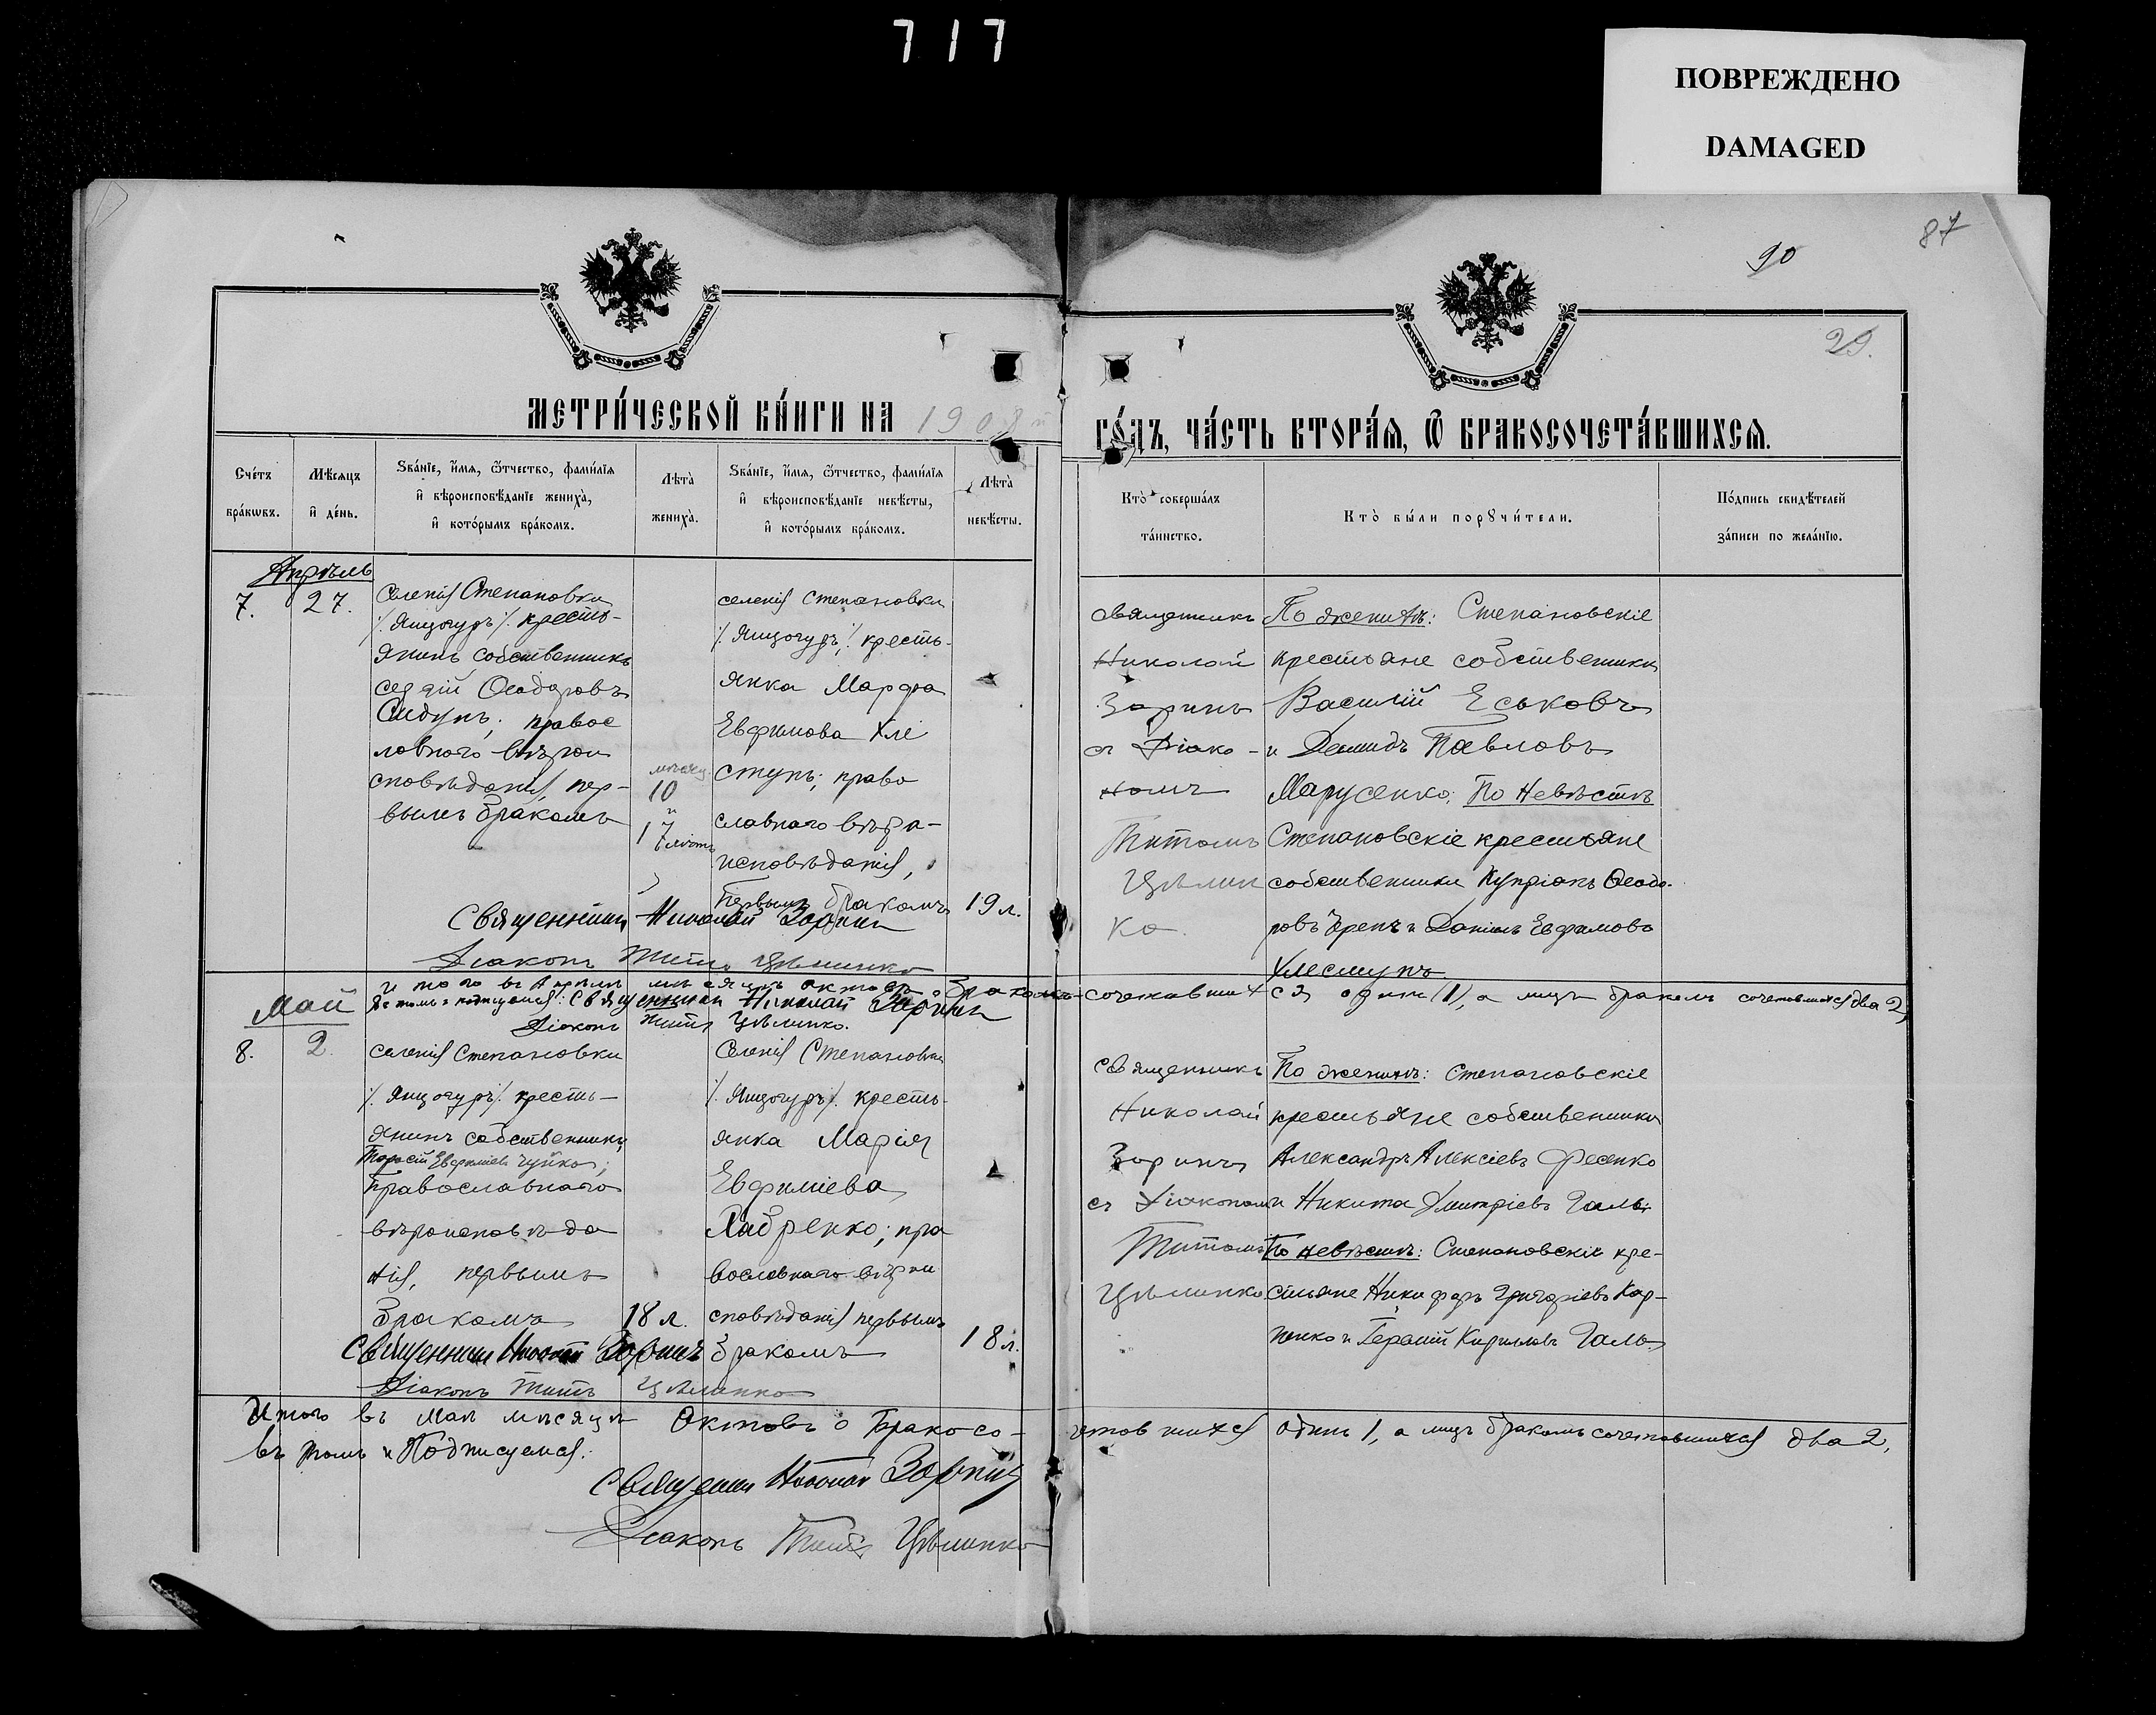 717
ПОВРЕЖДЕНО
DAMAGED
87
90
29.
МЕТРИ́ЧЕСКОЙ КНИ́ГИ НА 1908 й
ГО́ДЪ, ЧА́СТЬ ВТОРА́Я, Ѿ БРАКОСОЧЕТА́ВШИХСЯ.
Сче́тъ
бра́кѡвъ.
Мѣ́сяцъ
и҆ де́нь.
Ѕва́нїе, и҆́мя, ѻ҆́тчество, фами́лїя
и҆ вѣроисповѣ́данїе жениха̀,
и҆ кото́рымъ бра́комъ.
Лѣта̀
жениха̀.
Ѕва́нїе, и҆́мя, ѻ҆́тчество, фами́лїя
и҆ вѣроисповѣ́данїе невѣ́сты,
и҆ кото́рымъ бра́комъ.
Лѣта̀
невѣ́сты.
Кто̀ соверша́лъ
та́инство.
Кто̀ бы́ли порꙋчи́тели.
По́дпись свидѣ́телей
за́писи по жела́нїю.
Апрѣль
7.
27.
Селенія Степановки
/. Янцогуръ /. кресть-
янинъ собственникъ
Ѳеодоровъ
Сидунъ; правос
лавнаго вѣрои
сповѣданія, пер-
вымъ бракомъ
мѣсяц.
10
и
17 лѣтъ
селенія Степановки
/. Янцогуръ /. кресть-
янка Марфа
Евфимова Хле
стунъ; право
славнаго вѣро-
исповѣданія,
Первымъ бракомъ
19 л.
Священникъ
Николай
Зоринъ
съ Діако-
номъ
Титомъ
Цѣлин
ко.
По женихѣ: Степановскіе
крестьяне собственники
Василій Еськовъ
и Демидъ Павловъ
Марусенко; По Невѣстѣ
Степановскіе крестьяне
собственники Купріанъ Ѳеодо-
ровъ и Даніилъ Евфимовъ
Хлестунъ
Священникъ Николай Зоринъ
Діаконъ Титъ Цѣлинко
Итого въ Апрѣлѣ мѣсяцѣ актовъ о бракомъ сочетавшихся одинъ (1), а лицъ бракомъ сочетавшихся два 2,
въ томъ и подписуемся: Священникъ Николай Зоринъ
Діаконъ Титъ Цѣлинко.
Май
8.
2.
селенія Степановки
/. Янцогуръ /. кресть-
янинъ собственникъ
Тарасій Евфиміевъ Чуйко;
Православнаго
вѣроисповѣда
нія, первымъ
бракомъ
18 л.
Селенія Степановки
/. Янцогуръ /. кресть-
янка Марія
Евфиміева
Лабренко; пра
вославнаго вѣрои
сповѣданія первымъ
бракомъ
18 л.
Священникъ
Николай
Зоринъ
съ Діакономъ
Титомъ
Цѣлинко
По женихѣ: Степановскіе
крестьяне собственники
Александръ Алексіевъ Фесенко
и Никита Димитріевъ Галь;
По невѣстѣ: Степановскіе кре-
стьяне Никифоръ Григоріевъ Кар-
пенко и Герасій Кириловъ Галь.
Священникъ Николай Зоринъ
Діаконъ Титъ Цѣлинко
Итого въ Маѣ мѣсяцѣ Актовъ о Бракосо-четавшихся одинъ 1, а лицъ бракомъ сочетавшихся два 2,
въ томъ и Подписуемся:
Священникъ Николай Зоринъ
Діаконъ Титъ Цѣлинко